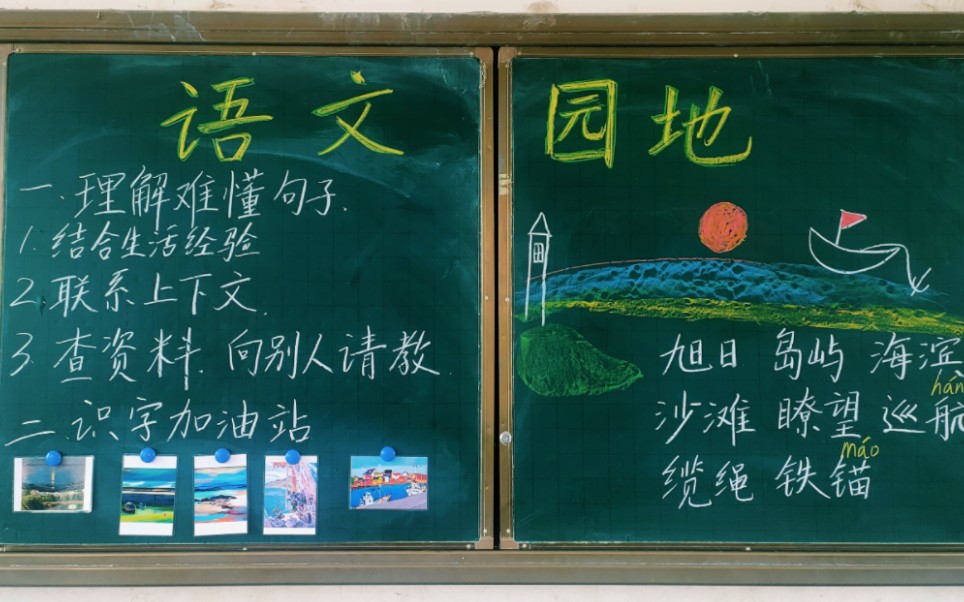 语文园地
一.理解难懂句子.
1.结合生活经验
2.联系上下文.
3.查资料.向别人请教.
二.识字加油站
旭日 岛屿 海滨
háng
沙滩 瞭望 巡航
máo
缆绳 铁锚